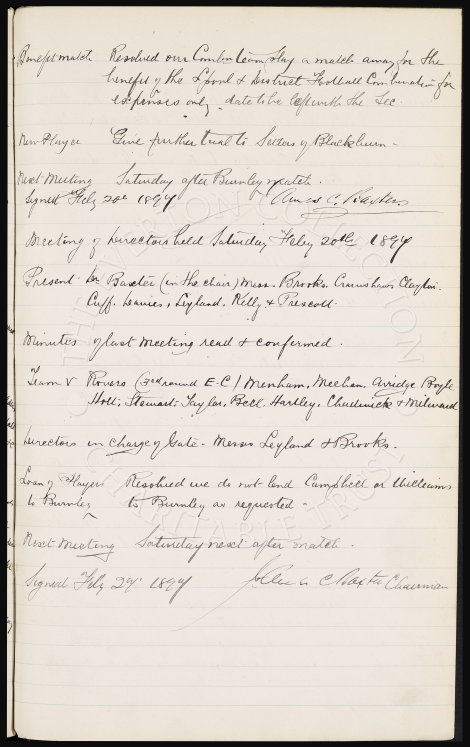 Benefit match Resolved our Combon team play a match away for the
benefit of the L'pool & District Football Combination for
expenses only, date to be left with the Sec.
New Player Give further trial to Sellers of Blackburn -
Next Meeting Saturday after Burnley match.
Signed Feby 20th 1897 James C. Baxter
Meeting of Directors held Saturday Feby 20th 1897
Present Dr Baxter (in the chair) Messrs. Brooks. Crawshaw Clayton.
Cuff. Davies, Leyland. Kelly & Prescott.
Minutes of last meeting read & confirmed.
Team V Rovers (3rd round E-C) Menham, Meehan, Arridge Boyle
Holt, Stewart, Taylor, Bell, Hartley, Chadwick & Milward
Directors in charge of Gate - Messrs Leyland & Brooks.
Loan of Players Resolved we do not lend Campbell or Williams
to Burnley to Burnley as requested -
Next Meeting Saturday next after match.
Signed Feby 27 1897 James C Baxter Chairman
THE EVERTON COLLECTION
CHARITABLE TRUST